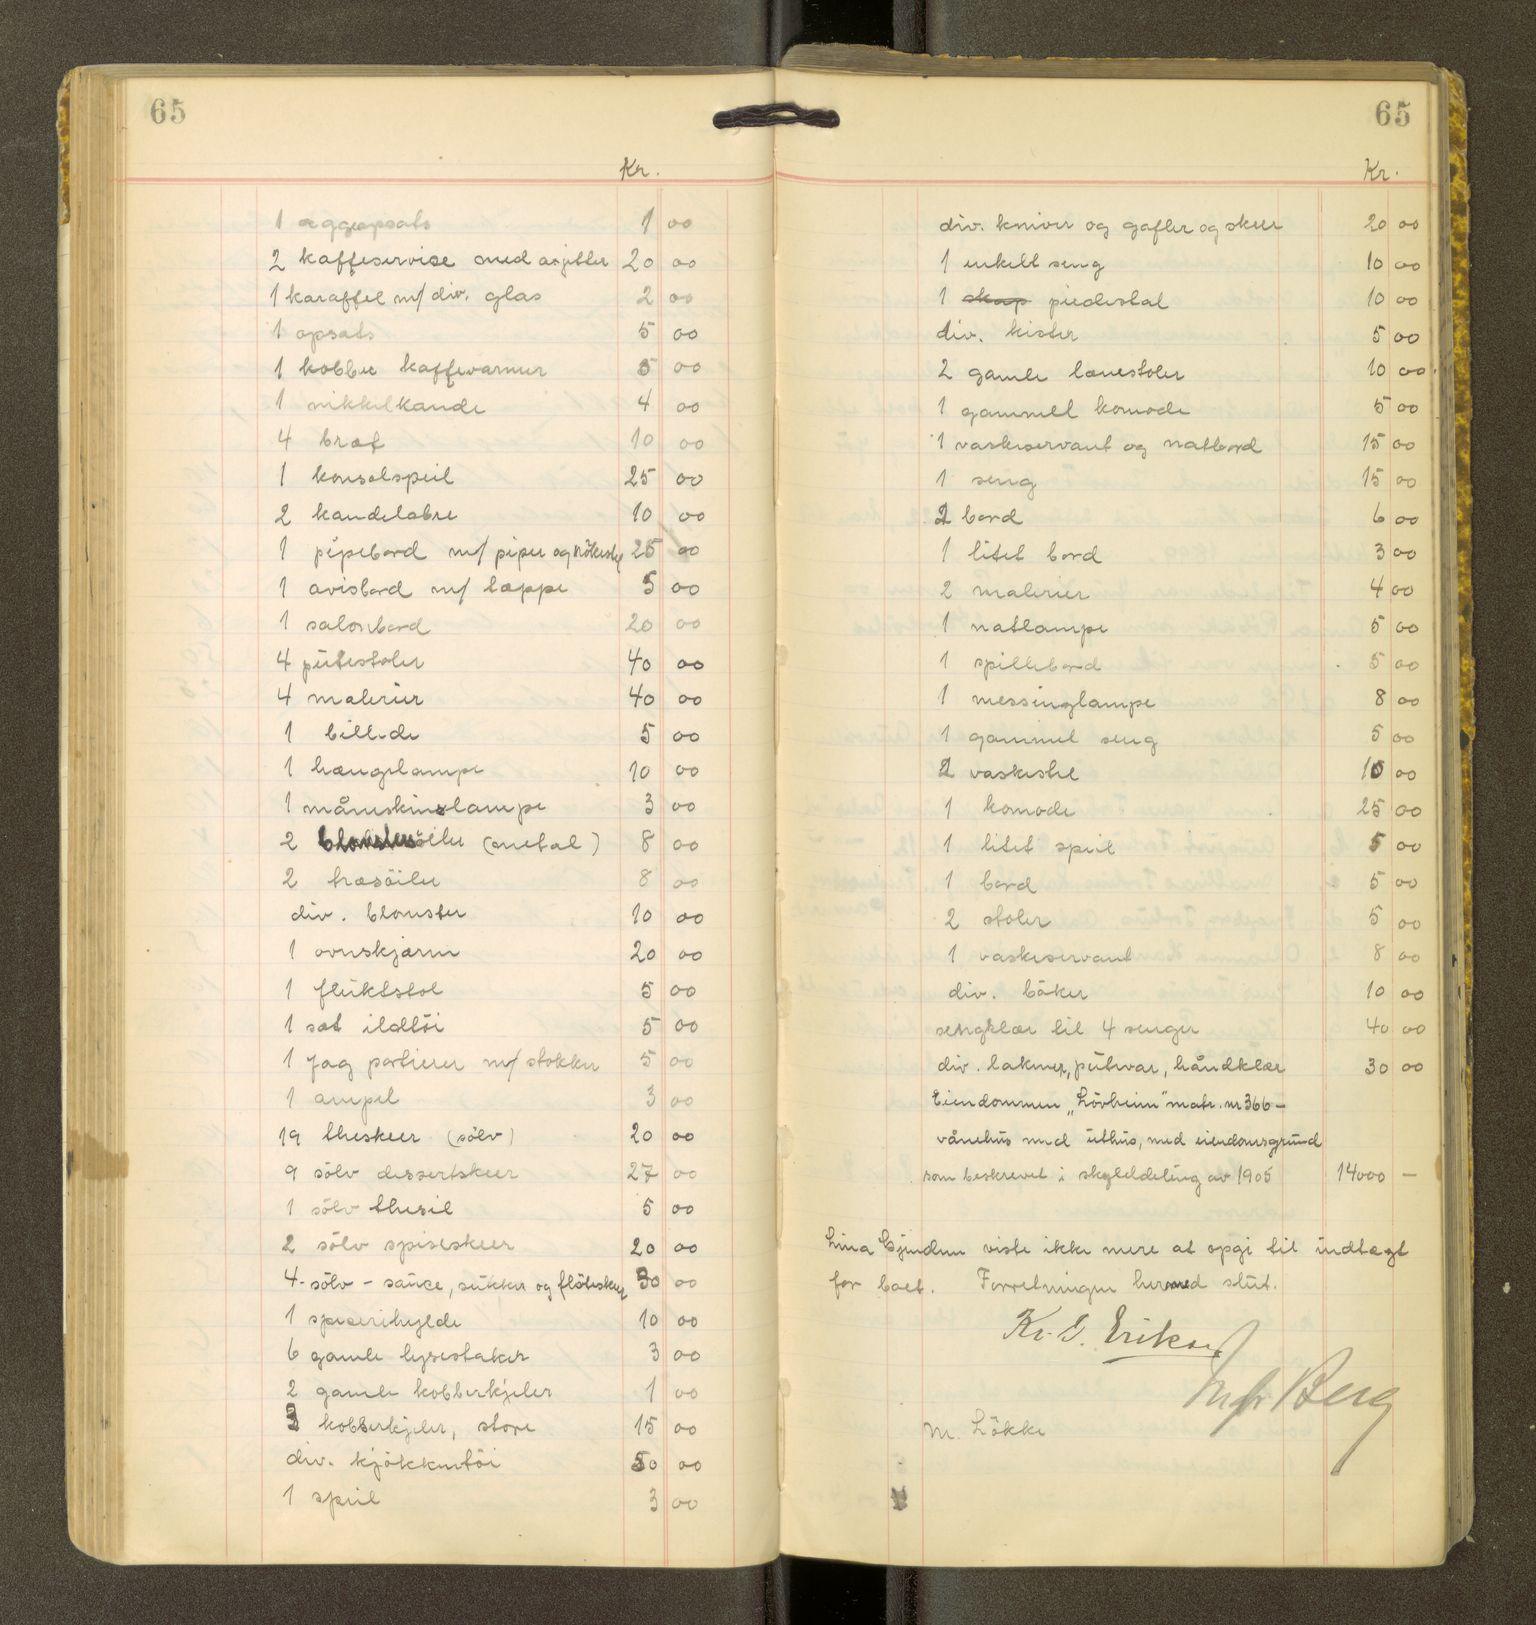 65
Kr.
1 æggeopsats 1 00
2 kaffeservise med asjetter 20 00
1 karaffel m/ div. glas 2 00
1 opsats 5 00
1 kobber kaffevarmer 5 00
1 nikkelkande 4 00
4 bræt 10 00
1 konsolspeil 25 00
2 kandelabre 10 00
1 pipebord m/ piper og 25 00
1 avisbord m/ tæppe 5 00
1 salonbord 20 00
4 pütestoler 40 00
4 malerier 40 00
1 billede 5 00
1 hængelampe 10 00
1 måneskinslampe 3 00
2 blomstersöiler (metal) 8 00
2 træsöiler 8 00
div. blomster 10 00
1 ovnskjærm 20 00
1 flüktstol 5 00
1 sæt ildtöi 5 00
1 fag portierer m/ stokker 5 00
1 ampel 3 00
19 theskeer (sölv) 20 00
9 sölv dessertskeer 27 00
1 sölv thesil 5 00
2 sölv spiseskeer 20 00
4 - sölv - saüce, sükker og flöteskeer 30 00
1 spiserihylde 10 00
6 gamle lysestaker 3 00
2 gamle kobberkjeler 1 00
3 kobberkjeler, store 15 00
div. kjökkentöi 50 00
1 speil 3 00
65
Kr.
div. kniver og gafler og skeer 20 00
1 enkelt seng 10 00
1 skap piedestal 10 00
div. kister 5 00
2 gamle lænestoler 10 00
1 gammel komode 5 00
1 vaskeservant og natbord 15 00
1 seng 15 00
2 bord 6 00
1 litet bord 3 00
2 malerier 4 00
1 natlampe 5 00
1 spillebord 5 00
1 messinglampe 8 00
1 gammel seng 5 00
2 vaskestel 10 00
1 komode 25 00
1 litet speil 5 00
1 bord 5 00
2 stoler 5 00
1 vaskeservant 8 00
div. böker 10 00
sengklær til 4 senger 40 00
div. lakner, pütevar, håndklær 30 00
Eiendommen „Lövheim" matr. nr 366 -
vånehüs med üthüs, med eiendomsgründ
som beskrevet i skylddeling av 1905 14000 -
Lina Gjendem viste ikke mere at opgi til indtægt
for boet. Forretningen hermed slüt.
Kr. S. Eriksen
Berg
M. Lökke